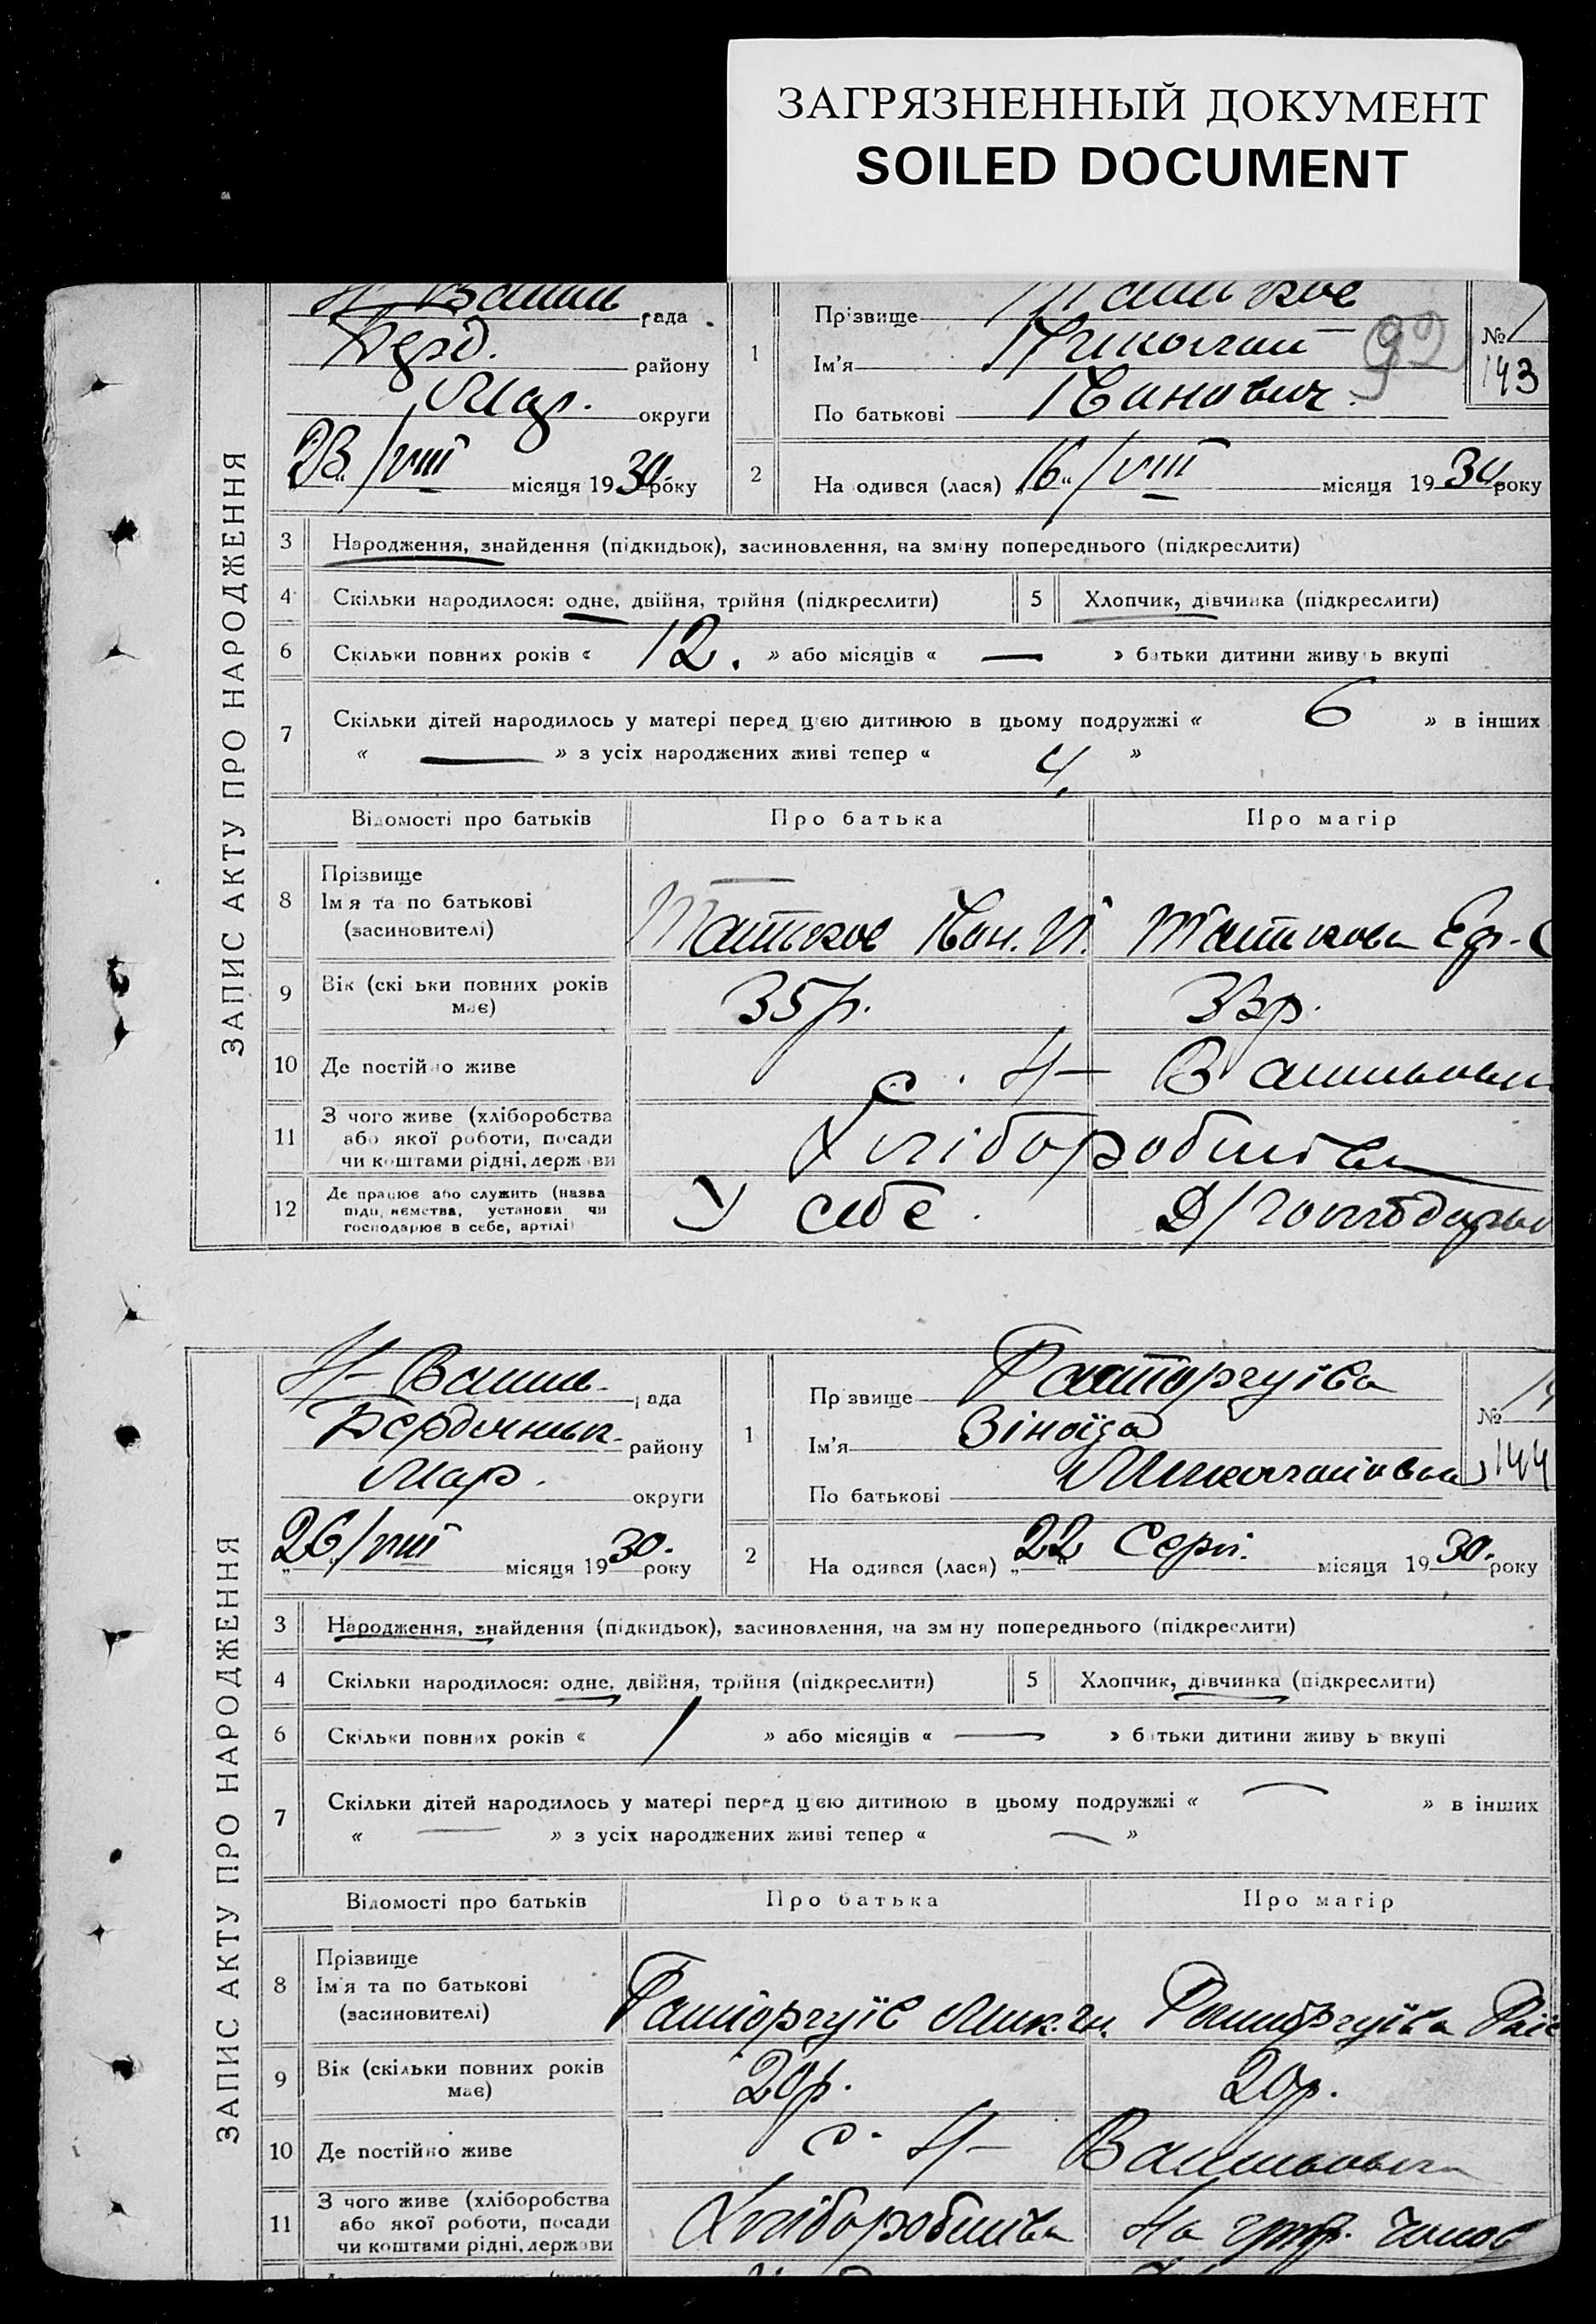 ЗАГРЯЗНЕННЫЙ ДОКУМЕНТ
SOILED DOCUMENT
ЗАПИС АКТУ ПРО НАРОДЖЕННЯ
Н-Васил рада
Берд. району
Мар. округи
„23“/VIII місяця 1930 року
1
Прізвище
Ім'я Николай
По батькові Іванович
92
№
143
2
На одився (лася) „16“/VIII місяця 1930 року
3 Народження, знайдення (підкидьок), засиновлення, на зміну попереднього (підкреслити)
4 Скільки народилося: одне, двійня, трійня (підкреслити) 5 Хлопчик, дівчинка (підкреслити)
6 Скільки повних років « 12. » або місяців « — » батьки дитини живу ь вкупі
7 Скільки дітей народилось у матері перед цією дитиною в цьому подружжі « 6 » в інших
« — » з усіх народжених живі тепер « 4 »
Відомості про батьків Про батька Про матір
8 Прізвище
Ім я та по батькові
(засиновителі)
9 Вік (скі ьки повних років має) 35 р. 33 р.
10 Де постійно живе с. Н- Васильовка
11 З чого живе (хліборобства
або якої роботи, посади
чи коштами рідні, держави
Хліборобства
12 Де працює або служить (назва
підп иємства, установи чи
господарює в себе, артілі)
У себе. Д/господарка
ЗАПИС АКТУ ПРО НАРОДЖЕННЯ
Н-Васил. рада
Бердянськ. району
Мар. округи
„26“/VIII місяця 1930. року
1
Пр звище Расторгуїва
Ім'я Зіноїда
По батькові Миколаївна
№
144
2
На одився (лася) „22“ Серп. місяця 1930. року
3 Народження, знайдення (підкидьок), засиновлення, на зм ну попереднього (підкреслити)
4 Скільки народилося: одне, двійня, трійня (підкреслити) 5 Хлопчик, дівчинка (підкреслити)
6 Скільки повних років « 1 » або місяців « — » б тьки дитини живу ь вкупі
7 Скільки дітей народилось у матері перед ц єю дитиною в цьому подружжі « — » в інших
« — » з усіх народжених живі тепер « — »
Відомості про батьків Про батька Про матір
8 Прізвище
Ім'я та по батькові
(засиновителі)
Расторгуїв Мик. Расторгуїва
9 Вік (скільки повних років має) 20 р. 20 р.
10 Де постійно живе с. Н- Васильовка
11 З чого живе (хліборобства
або якої роботи, посади
чи коштами рідні, держави
Хліборобства На